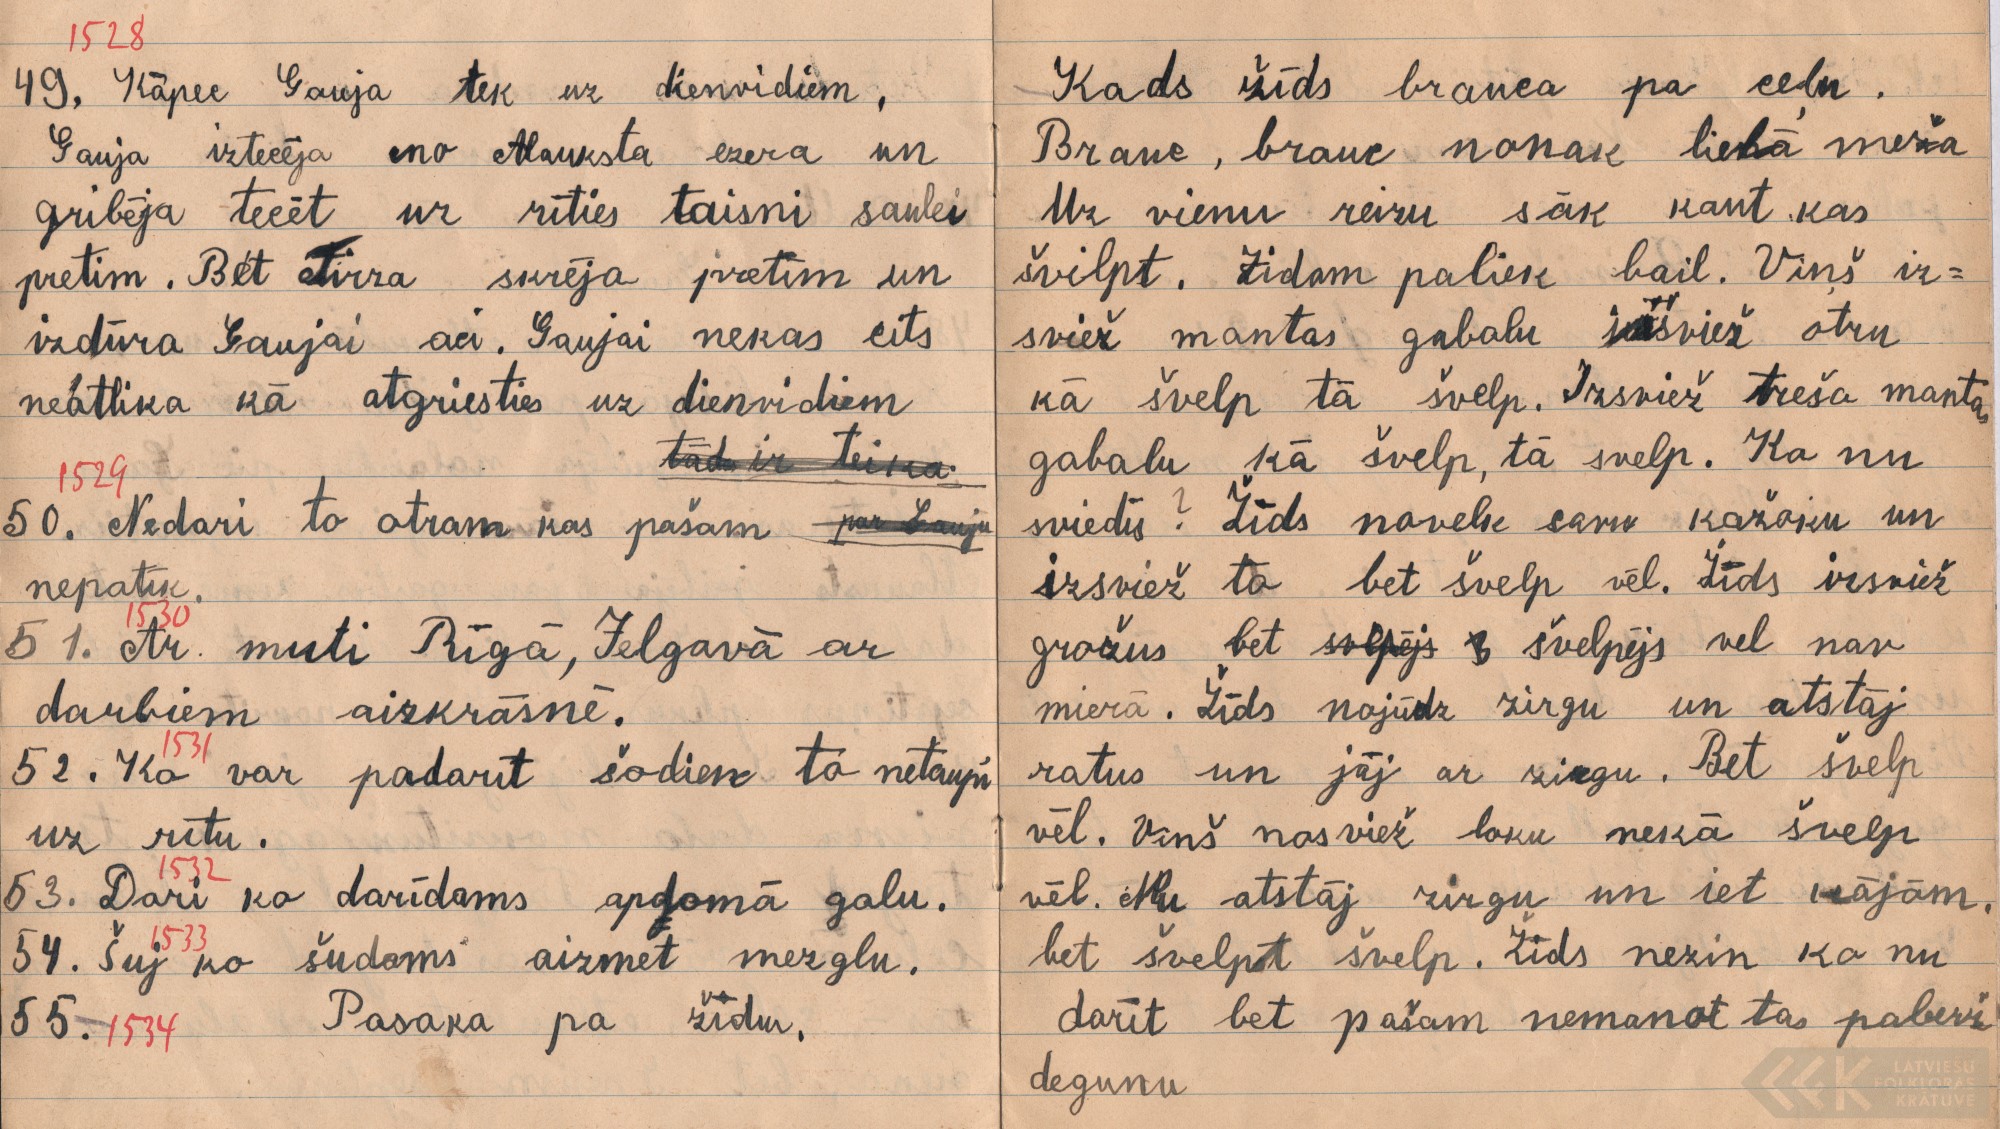 1528
49. Kāpec Gauja tek uz dienvidiem,
Gauja iztecēja no Alauksta ezera un
gribēja tecēt uz rīties taisni saulei
pretim. Bet Tirza skrēja pretīm un
izdūra Gaujai aci. Gaujai nekas cits
neatlika kā atgriesties uz dienvidiem
tāda ir teika
1529
50. Nedari to otram kas pašam par Gauju
nepatīk.
1530
51. Ar muti Rīgā, Jelgavā ar
darbiem aizkrāsnē.
1531
52. Ko var padarīt šodien to netaupi
uz rītu.
1532
53. Dari ko darīdams apdomā galu.
1533
54. Šuj ko šudams aizmet mezglu.
55. 1534 Pasaka pa žīdu.
Kads žīds brauca pa ceļu.
Brauc, brauc nonak lielā meža
Uz vienu reizu sāk kaut kas
švilpt. Židam paliek bail. Viņš iz=
sviež mantas gabalu sviež otru
kā švelp tā švelp. Izsviež treša mantas
gabalu kā švelp, tā svelp. Ko nu
sviedīs? Žīds novelk savu kažoku un
izsviež to bet švelp vēl. Žīds izsviež
grožus bet svelpējs švelpējs vel nav
mierā. Žīds nojūdz zirgu un atstāj
ratus un jāj ar zirgu. Bet švelp
vēl. Viņš nosviež loku nekā švelp
vēl. Nu atstāj zirgu un iet kājām.
bet švelpt švelp. Žīds nezin ko nu
darīt bet pašam nemanot tas paberž
degunu
LATVIEŠU
FOLKLORAS
KRĀTUVE